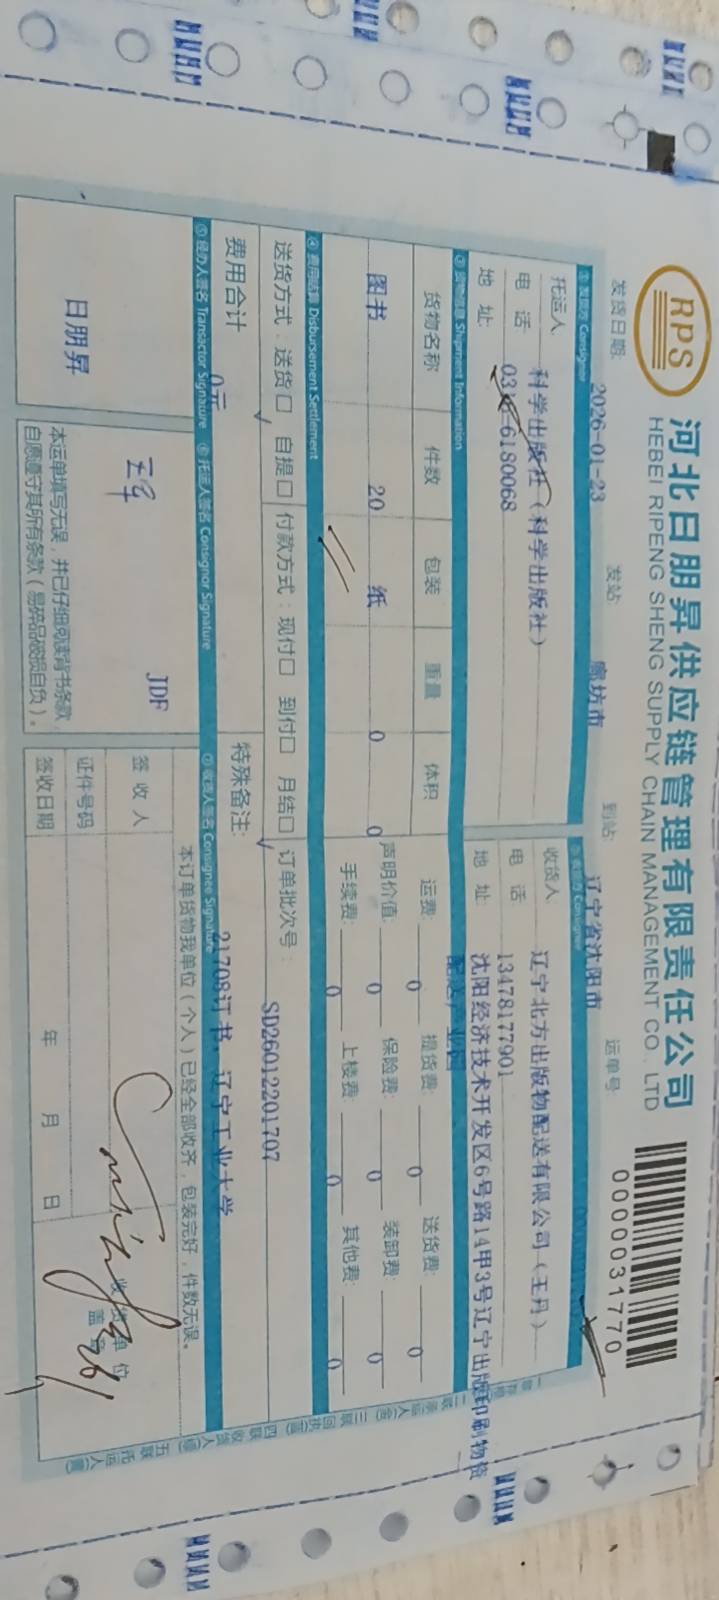 RPS
河北日朋昇供应链管理有限责任公司
HEBEI RIPENG SHENG SUPPLY CHAIN MANAGEMENT CO., LTD
0000031770
发货日期: 2026-01-23 发站: 廊坊市 到站: 辽宁省沈阳市 运单号
① 发货方 Consigner
托运人: 科学出版社(科学出版社)
电 话
6180068
地 址:
收货人: 辽宁北方出版物配送有限公司(王丹)
电 话 13478177901
地 址: 沈阳经济技术开发区6号路14甲3号辽宁出版印刷物资
配送产业园
③ 货物信息 Shipment Information
货物名称 件数 包装 重量 体积
图书 20 纸 0 0
运费: 0 提货费: 0 送货费: 0
声明价值: 0 保险费: 0 装卸费: 0
手续费: 0 上楼费: 0 其他费: 0
④ 费用结算 Disbursement Settlement
送货方式: 送货□ 自提□ 付款方式: 现付□ 到付□ 月结□ 订单批次号: SD26012201707
费用合计 0元
特殊备注: 21708订书, 辽宁工业大学
⑤ 经办人签名 Transactor Signature ⑥ 托运人签名 Consignor Signature ⑦ 收货人签名 Consignee Signature
日朋昇
JDF
本运单填写无误,并已仔细阅读背书条款,
自愿遵守其所有条款(易碎品破损自负)。
本订单货物我单位(个人)已经全部收齐,包装完好,件数无误。
签 收 人
证件号码
签收日期 年 月 日
收货单位
盖章